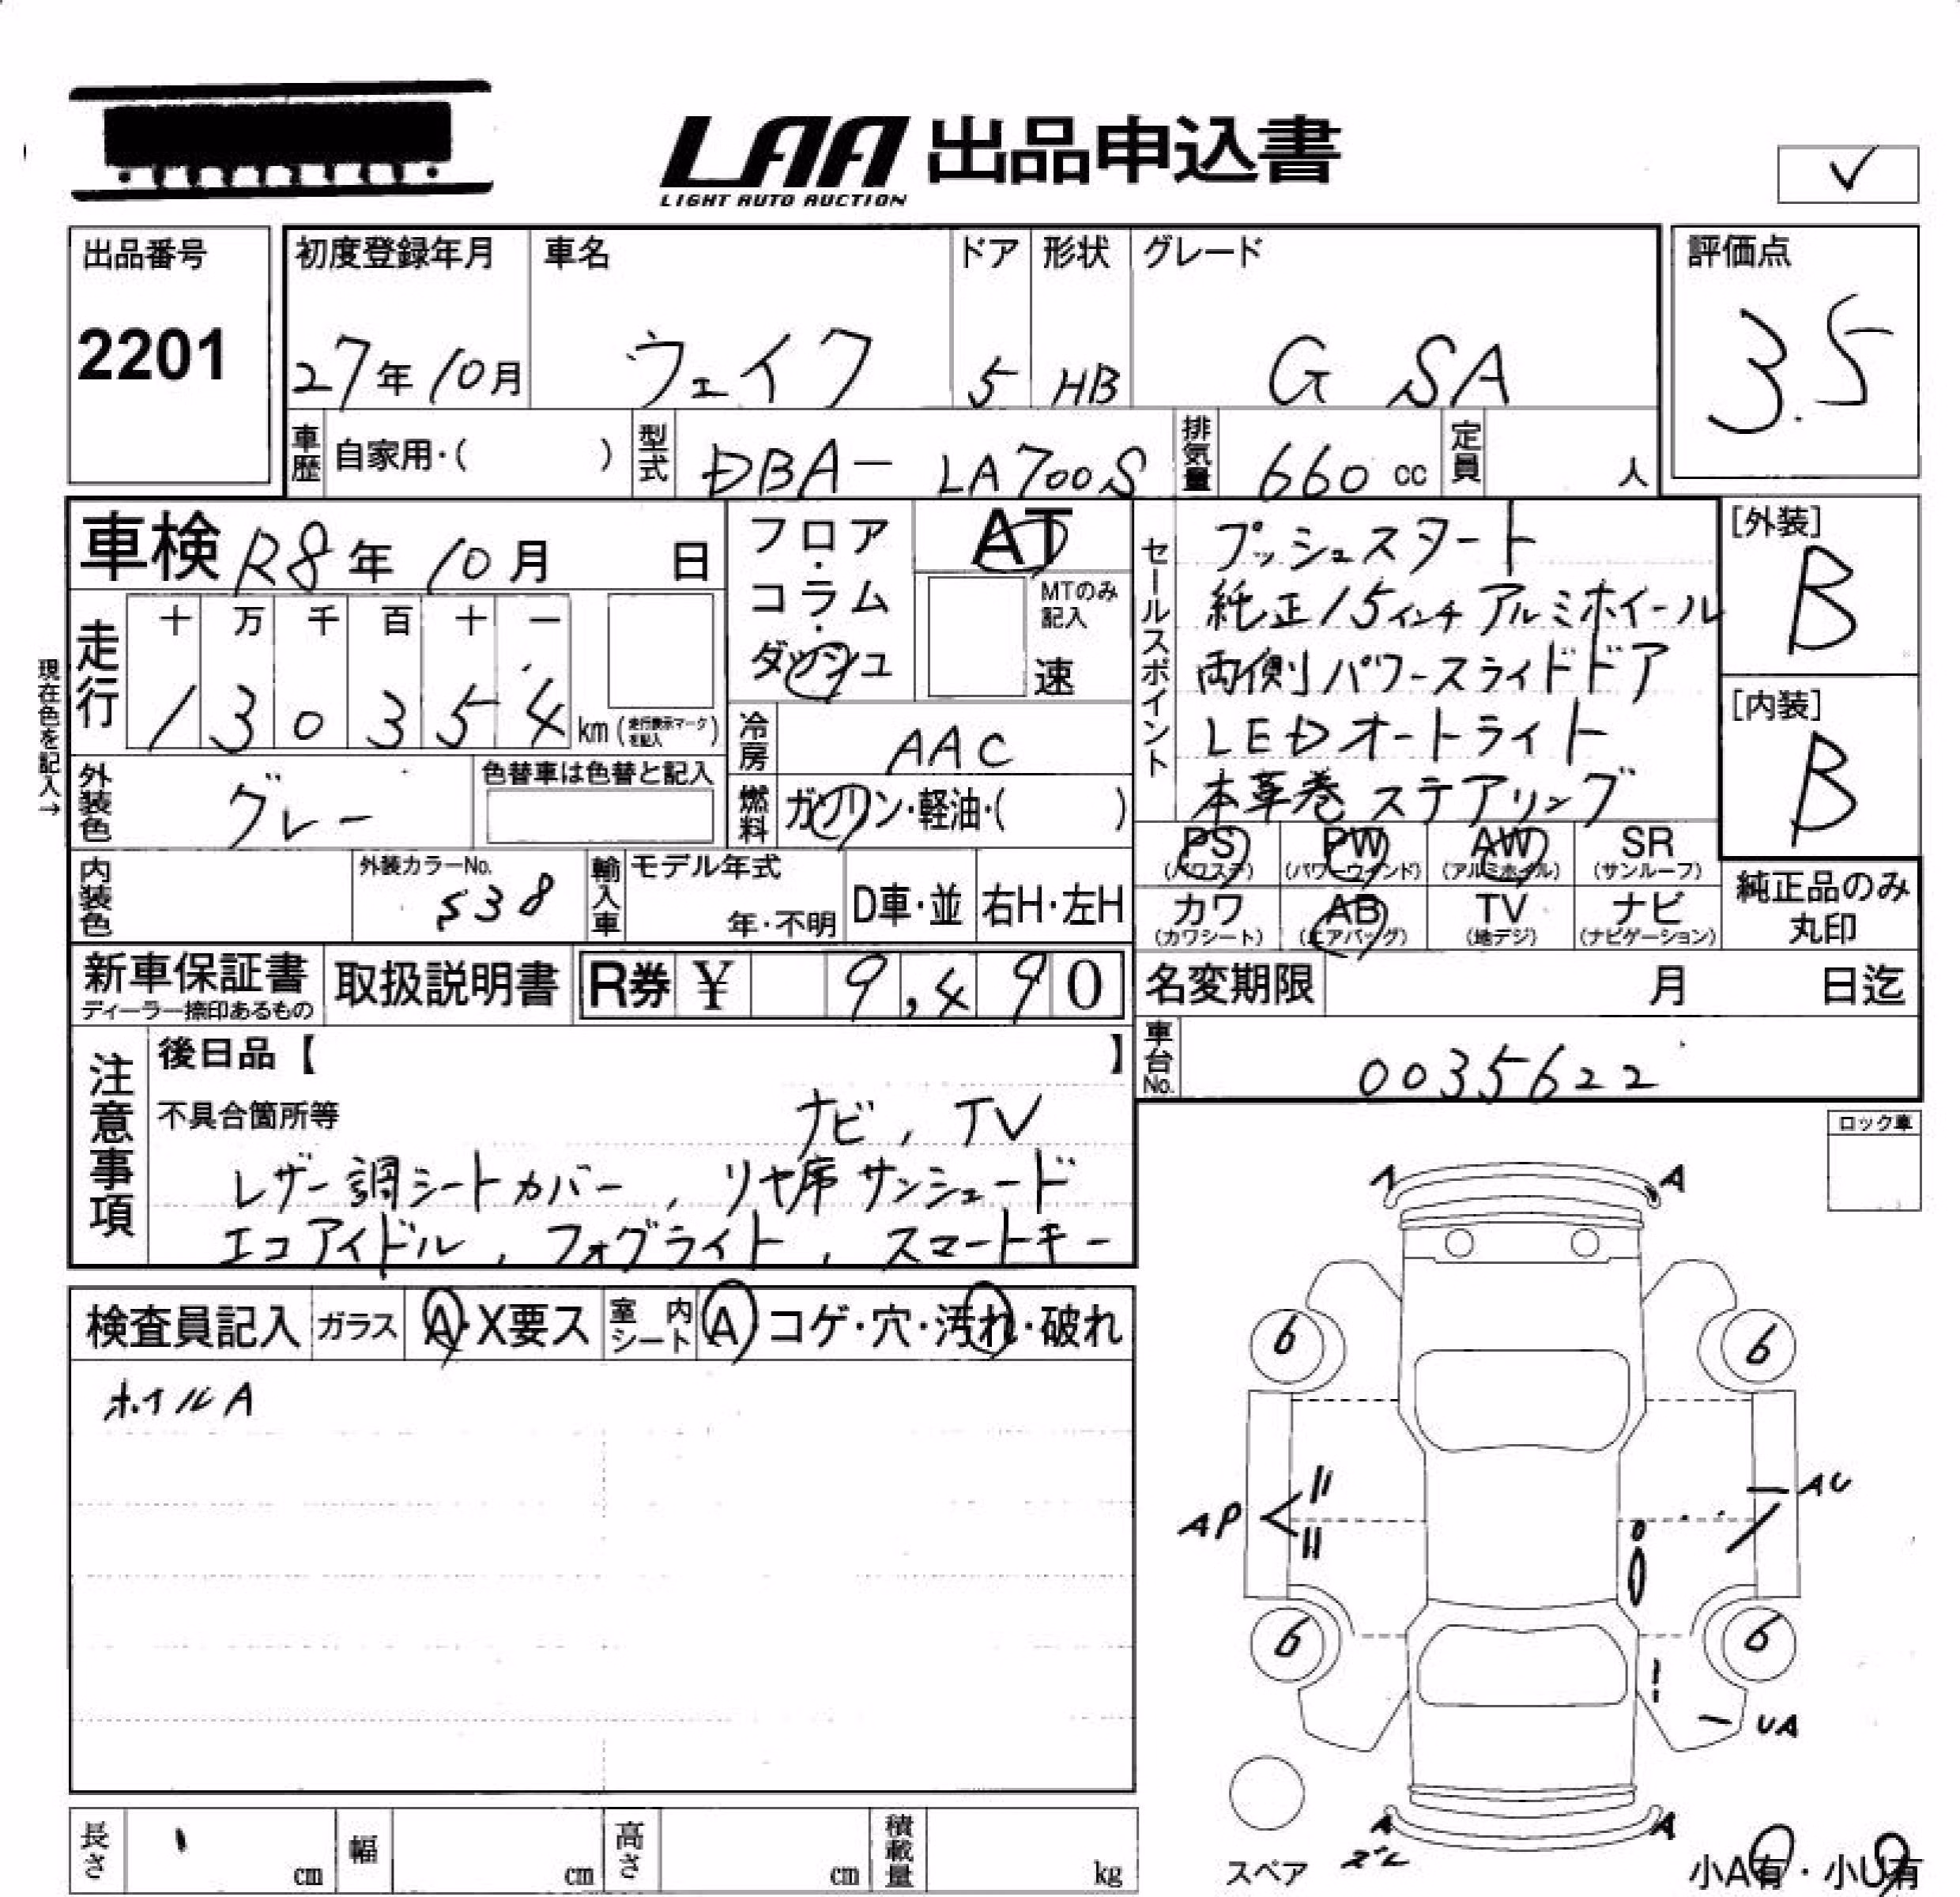 LAA 出品申込書
LIGHT AUTO AUCTION
✓
出品番号
2201
初度登録年月 車名 ドア 形状 グレード
27年10月 ウェイク 5 HB G SA
評価点
3.5
車歴 自家用・( ) 型式 DBA- LA700S 排気量 660 cc 定員 人
車検 R8年 10月 日
現在色を記入→
走行 十 万 千 百 十 一
1 3 0 3 5 4 km (走行表示マークを記入)
外装色 グレー 色替車は色替と記入
内装色 外装カラーNo. S38
輸入車 モデル年式 年・不明 D車・並 右H・左H
フロア・コラム・ダッシュ
AT
MTのみ記入
速
冷房 AAC
燃料 ガソリン・軽油・( )
セールスポイント
プッシュスタート
純正15インチアルミホイール
両側パワースライドドア
LEDオートライト
本革巻ステアリング
[外装]
B
[内装]
B
PS PW AW SR
(パワステ) (パワーウインド) (アルミホイル) (サンルーフ)
カワ AB TV ナビ
(カワシート) (エアバッグ) (地デジ) (ナビゲーション)
純正品のみ
丸印
新車保証書 取扱説明書 R券 ¥ 9,490
ディーラー捺印あるもの
名変期限 月 日迄
車台No. 0035622
注意事項
後日品【 】
不具合箇所等 ナビ, TV
レザー調シートカバー, リヤ席サンシェード
エコアイドル, フォグライト, スマートキー
ロック車
検査員記入 ガラス A・X要ス 室内シート A コゲ・穴・汚れ・破れ
ホイルA
A A
6 6
AP AU
6 6
UA
A A
スペア
小A有・小U有
長さ cm 幅 cm 高さ cm 積載量 kg